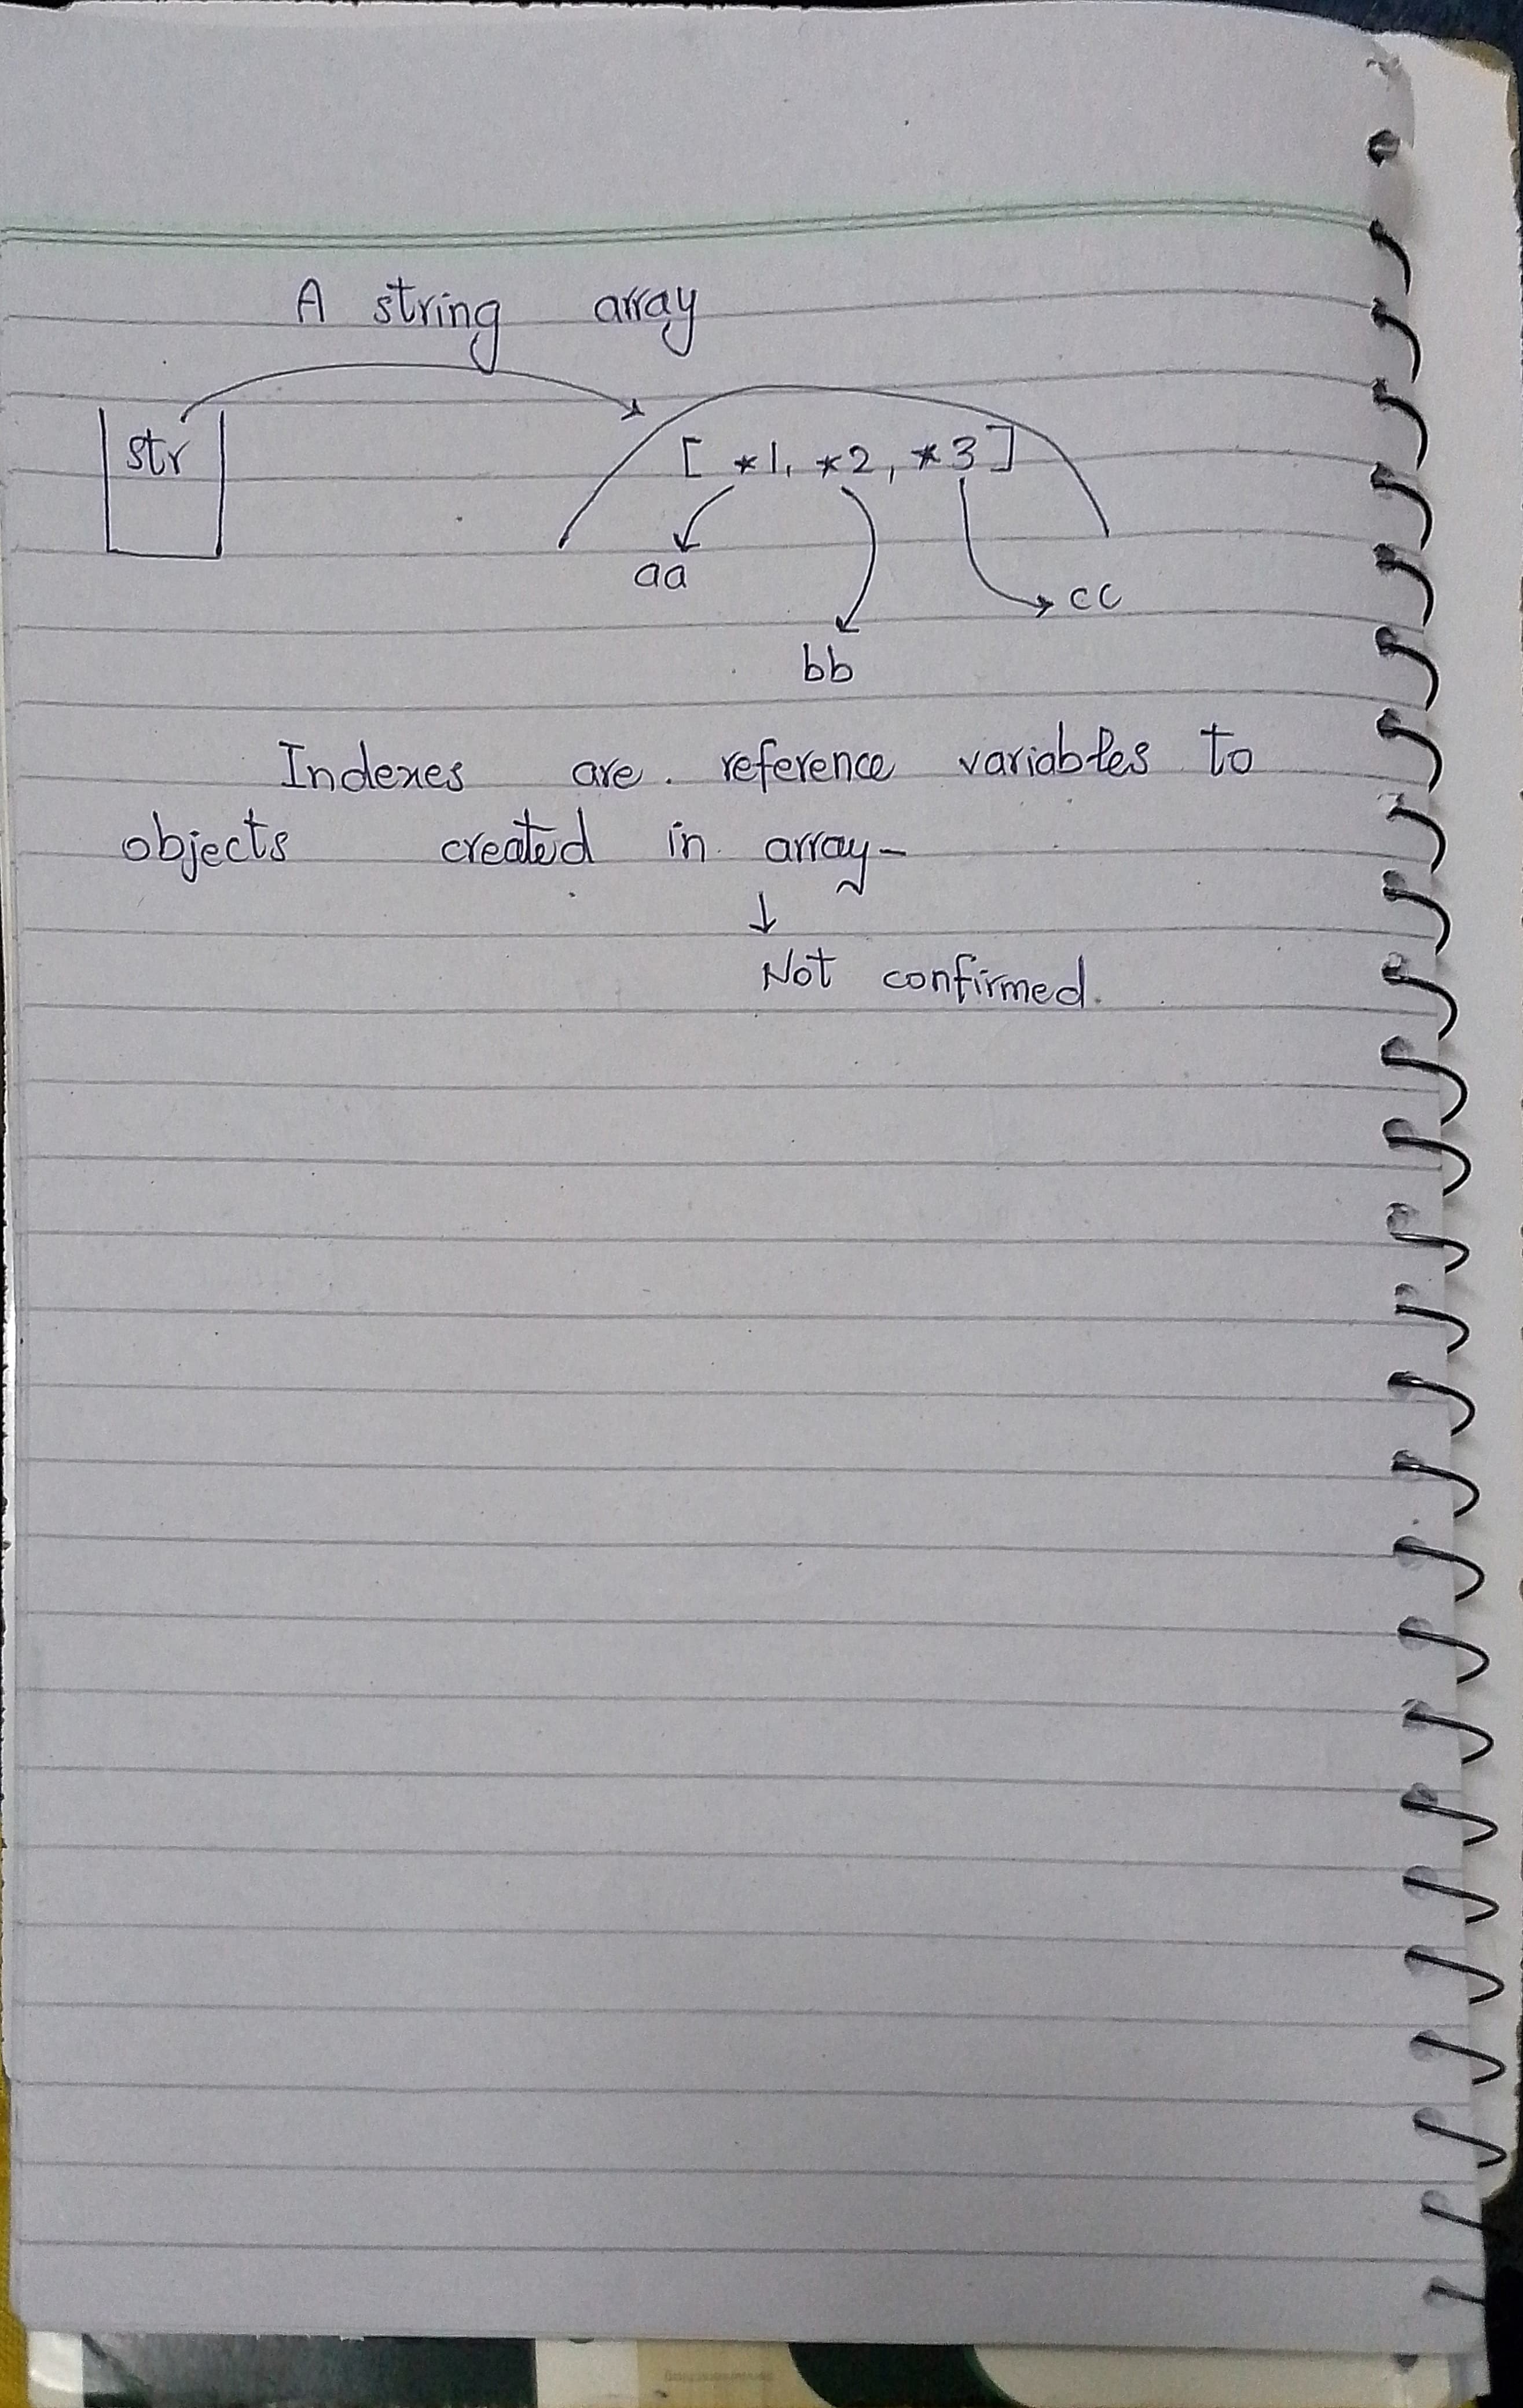 A string array
str
[ *1, *2, *3 ]
aa
cc
bb
Indexes are reference variables to
objects created in array-
Not confirmed.